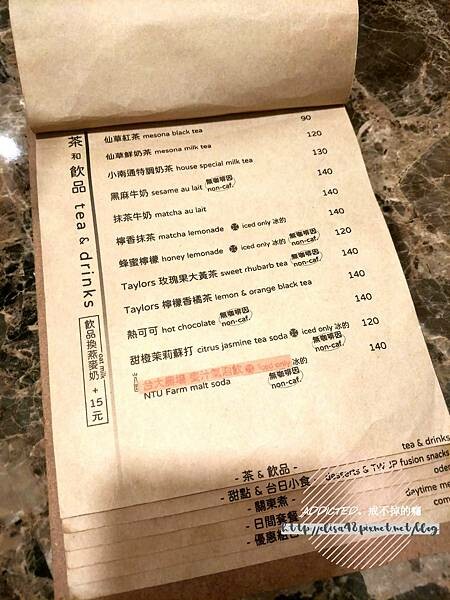 茶和飲品 tea & drinks
飲品換燕麥奶 oat milk + 15元
仙草紅茶 mesona black tea 90
仙草鮮奶茶 mesona milk tea 120
小南通特調奶茶 house special milk tea 130
黑麻牛奶 sesame au lait 無咖啡因 non-caf. 140
抹茶牛奶 matcha au lait 140
檸香抹茶 matcha lemonade iced only 冰的 140
蜂蜜檸檬 honey lemonade iced only 冰的 無咖啡因 non-caf. 120
Taylors 玫瑰果大黃茶 sweet rhubarb tea 無咖啡因 non-caf. 140
Taylors 檸檬香橘茶 lemon & orange black tea 140
熱可可 hot chocolate 無咖啡因 non-caf. 140
甜橙茉莉蘇打 citrus jasmine tea soda iced only 冰的 140
台大農場 蜜汁氣泡飲 iced only 冰的 無咖啡因 non-caf. 140
NTU Farm malt soda
- 茶 & 飲品 - tea & drinks
- 甜點 & 台日小食 - desserts & TW JP fusion snacks
- 關東煮 - oden
- 日間套餐 - daytime me
- 優惠組合 com
ADDICTED。戒不掉的癮
http://elisa98.pixnet.net/blog